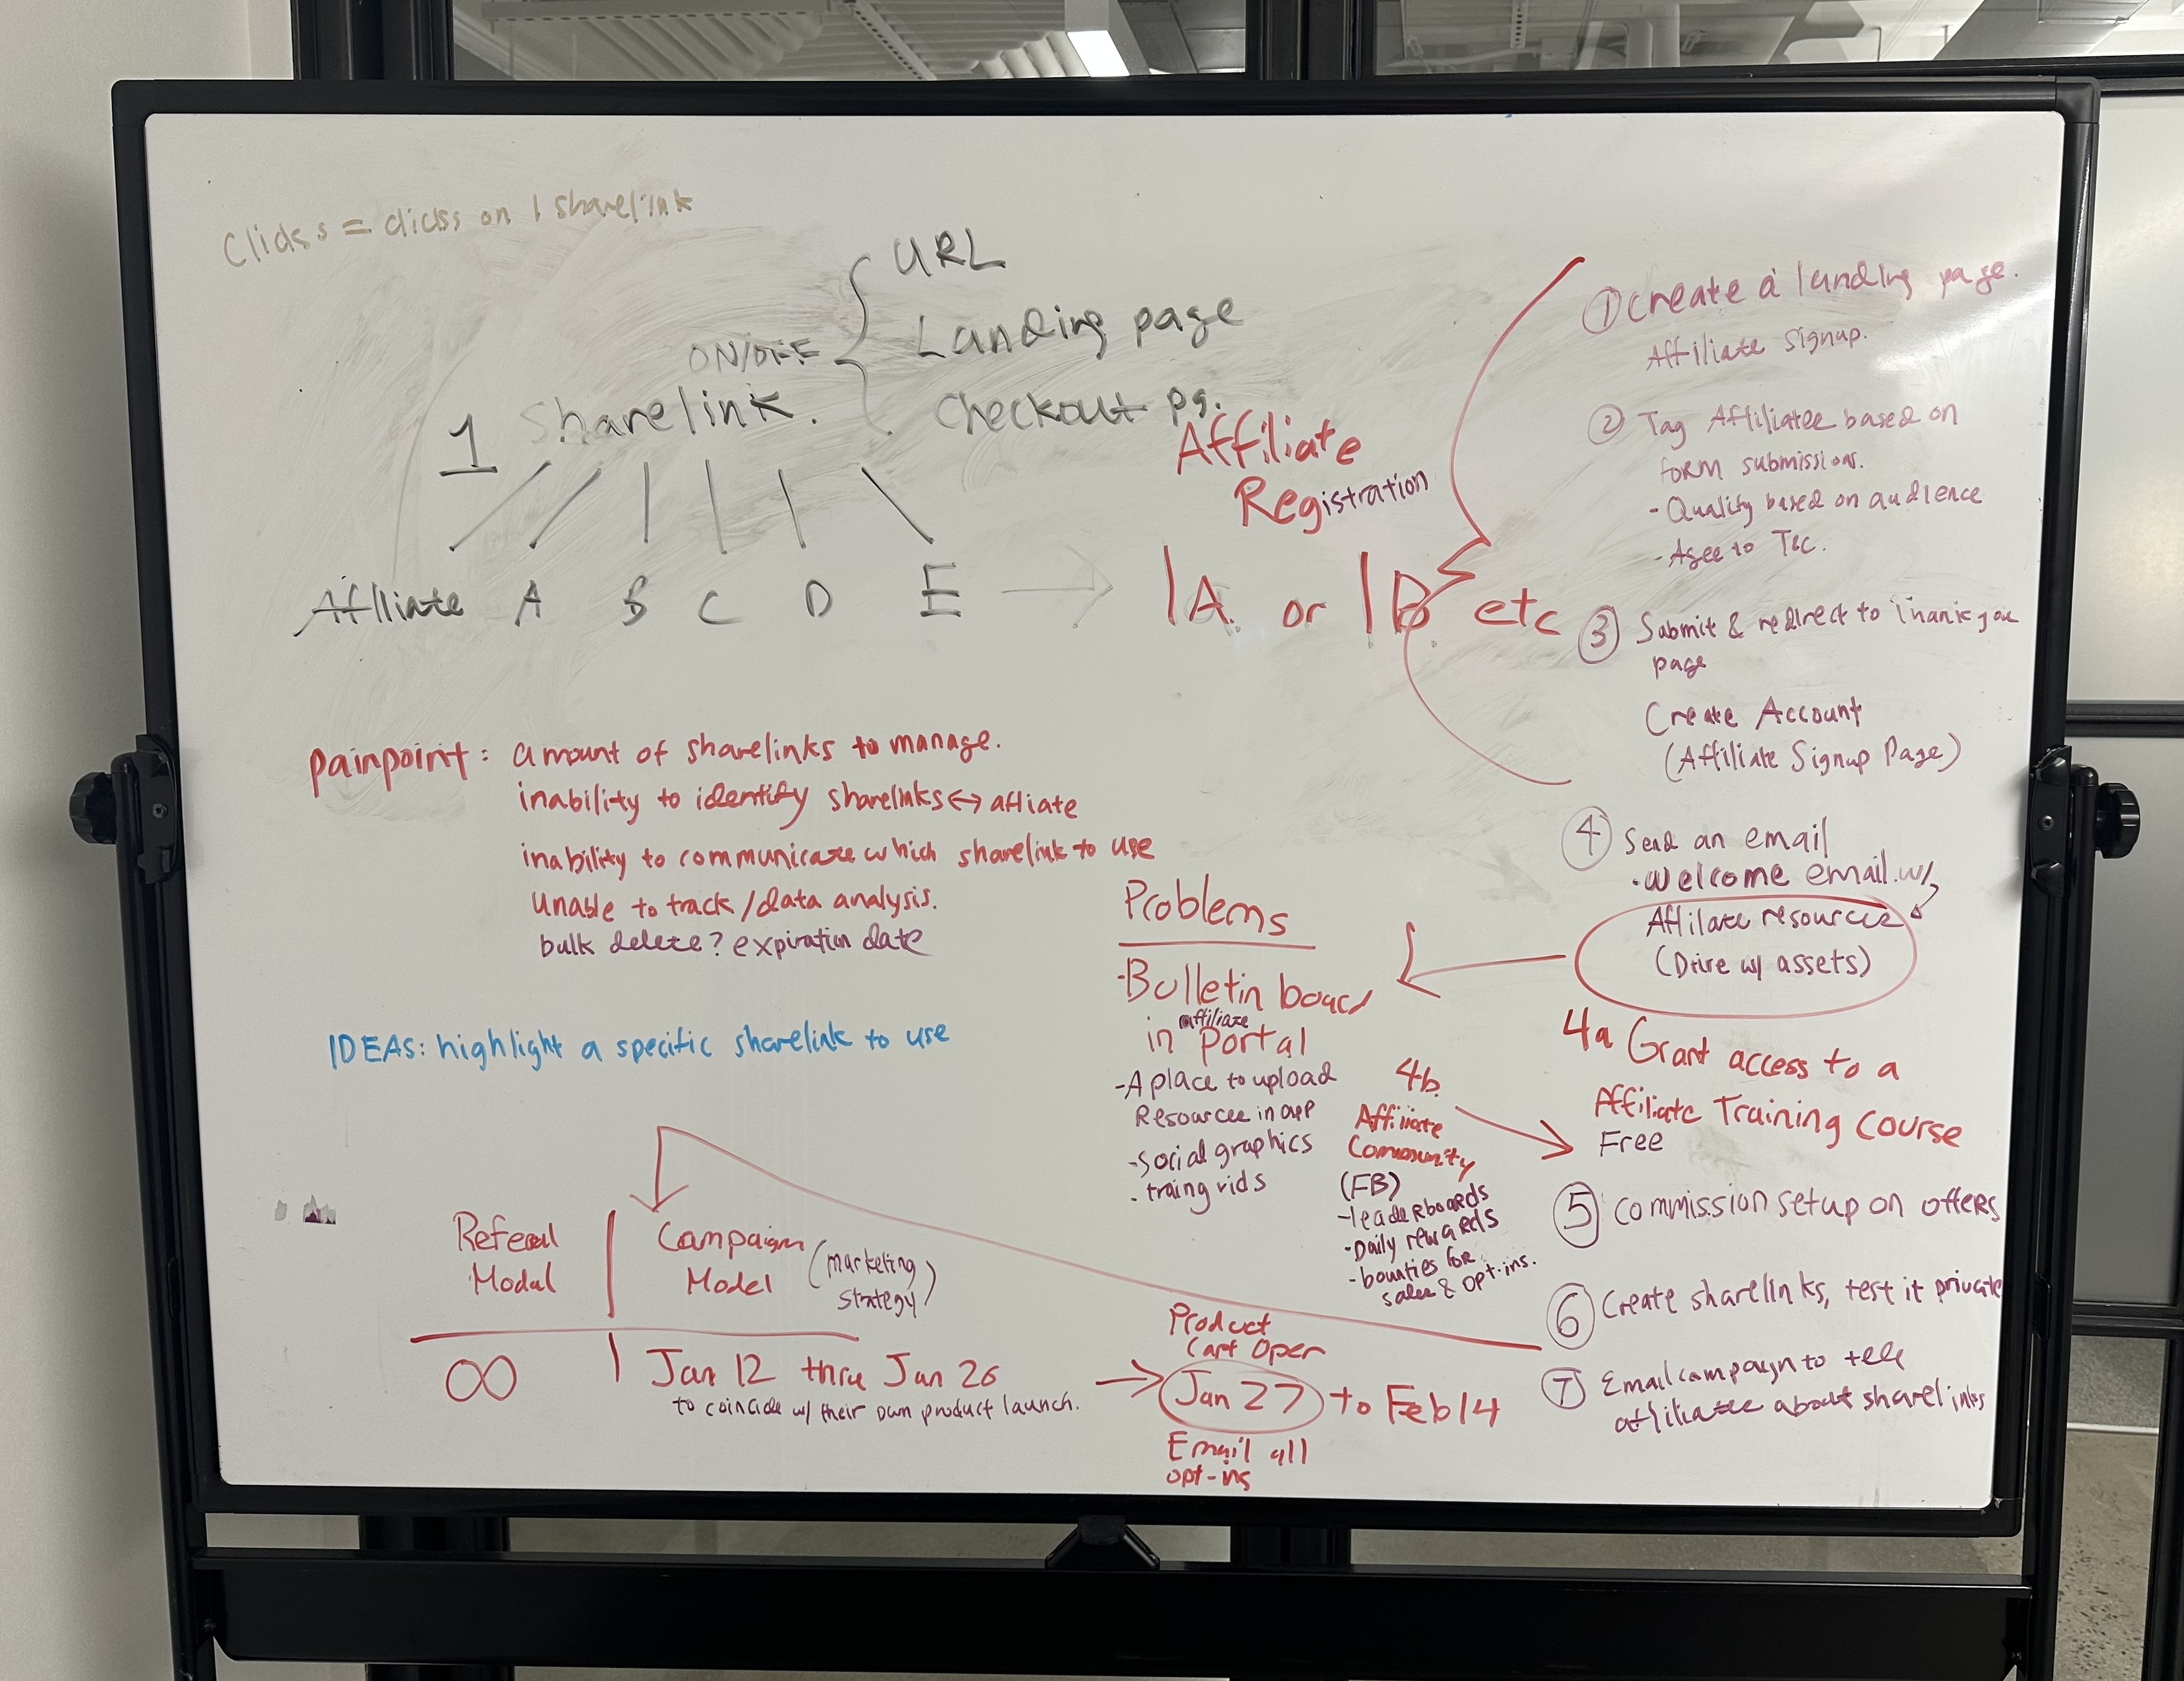 Clicks = clicks on 1 sharelink
URL
ON/OFF
Landing page
1 Sharelink.
Checkout pg.
Affiliate A B C D E
Affiliate
Registration
1A. or 1B. etc
① Create a landing page.
Affiliate Signup.
② Tag Affiliates based on
form submissions.
- Qualify based on audience
- Agee to T&C.
③ Submit & redirect to Thank you
page
Create Account
(Affiliate Signup Page)
④ Send an email
• Welcome email w/
Affiliate resources
(Drive w/ assets)
4a Grant access to a
Affiliate Training Course
Free
⑤ Commission setup on offers
⑥ Create sharelinks, test it private
⑦ Email campaign to tell
affiliates about sharelinks
painpoint: amount of sharelinks to manage.
inability to identify sharelinks ↔ affliate
inability to communicate which sharelink to use
Unable to track/data analysis.
bulk delete? expiration date
IDEAS: highlight a specific sharelink to use
Problems
- Bulletin board
in affiliate Portal
- A place to upload
Resources in app
- Social graphics
- traing vids
4b
Affiliate
Community
(FB)
- leaderboards
- Daily rewards
- bounties for
sales & opt-ins.
Referral
Modal
Campaign
Model
(marketing
strategy)
∞
Jan 12 thru Jan 26
to coincide w/ their own product launch.
Product
Cart Open
Jan 27 to Feb 14
Email all
opt-ins